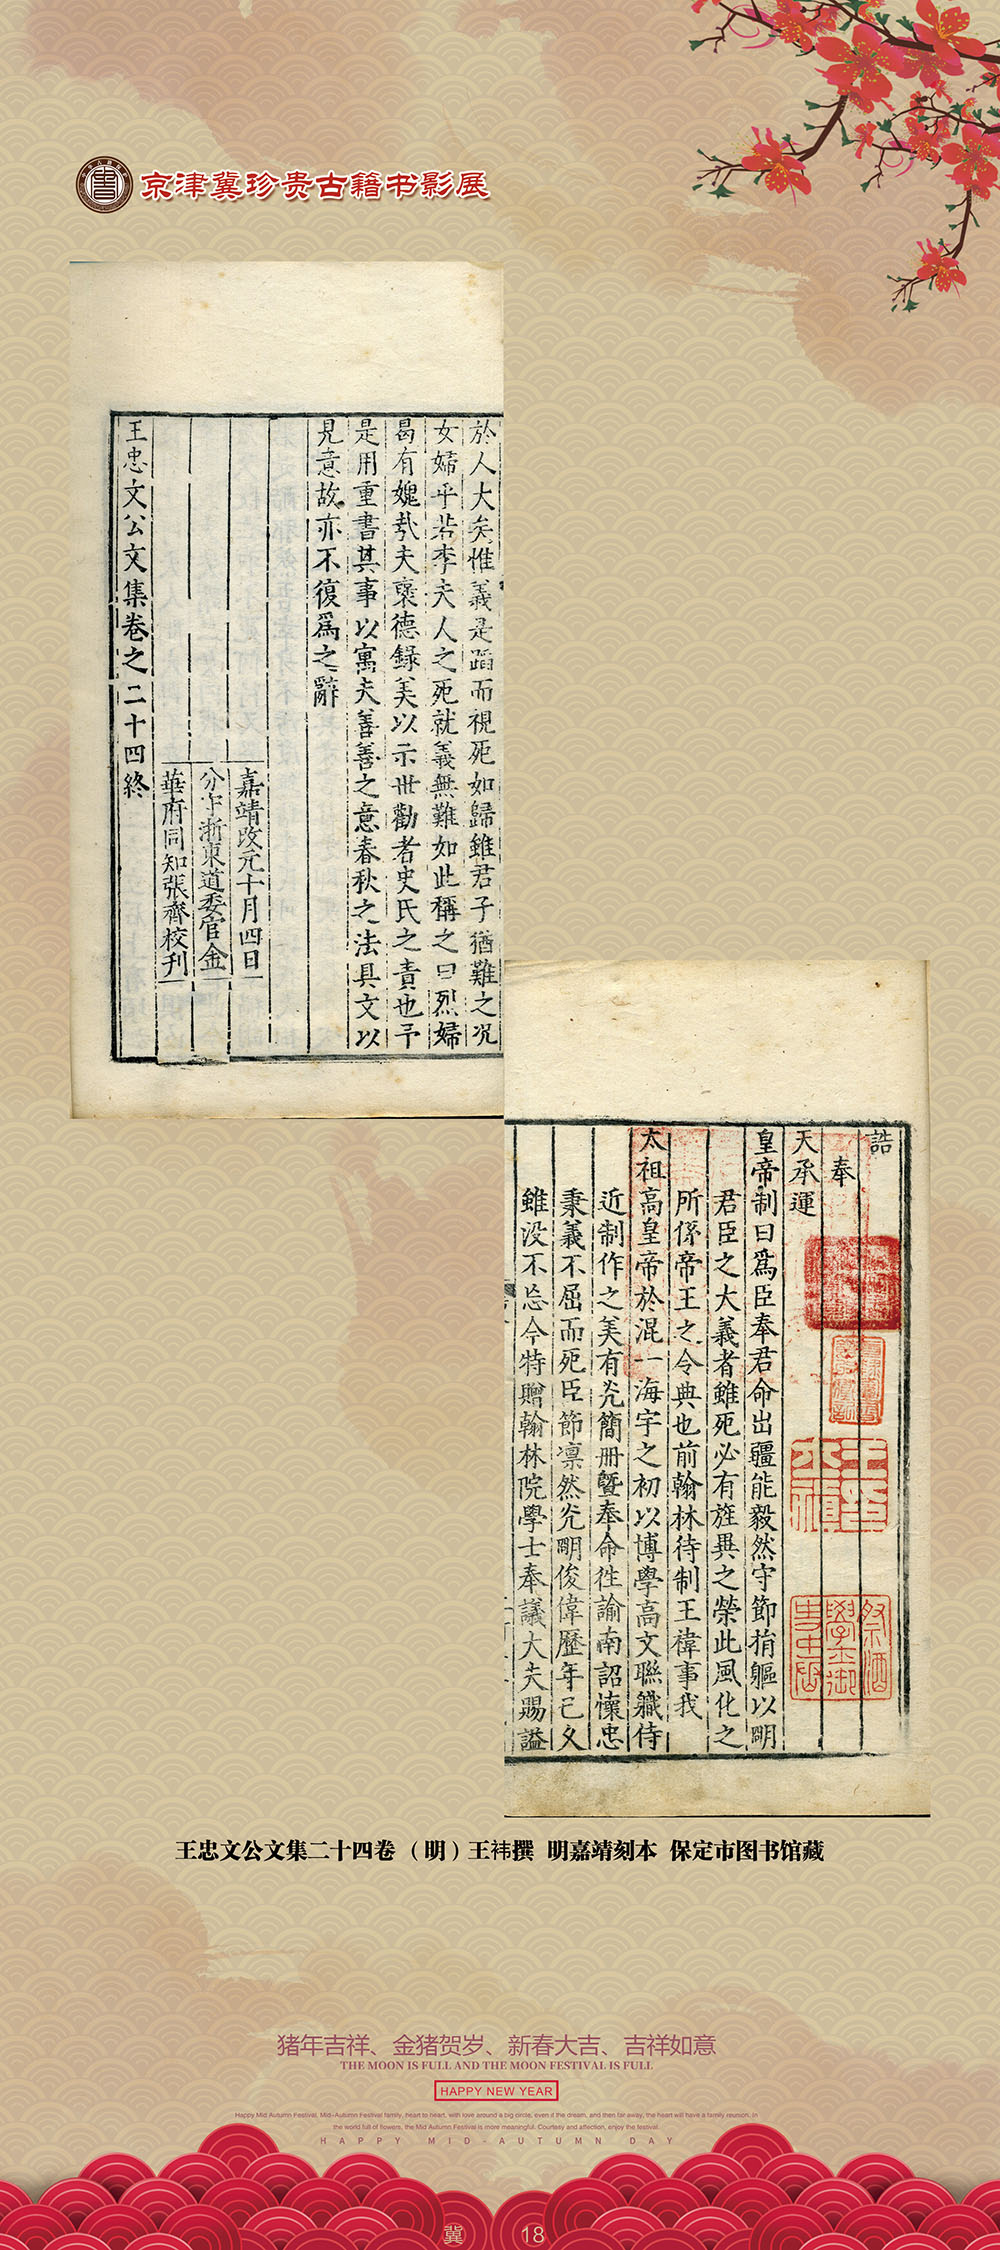 京津冀珍贵古籍书影展
於人大矣惟義是蹈而視死如歸雖君子猶難之况
女婦乎若李夫人之死就義無難如此稱之曰烈婦
曷有媿㢤夫褒德錄美以示世勸者史氏之責也予
是用重書其事以寓夫善善之意春秋之法具文以
見意故亦不復爲之辭
嘉靖改元十月四日
分守浙東道委官金
華府同知張齊校刊
王忠文公文集卷之二十四終
誥
奉
天承運
皇帝制曰爲臣奉君命出疆能毅然守節捐軀以明
君臣之大義者雖死必有旌異之榮此風化之
所係帝王之令典也前翰林待制王禕事我
太祖高皇帝於混一海宇之初以博學高文聯軄侍
近制作之美有光簡冊曁奉命徃諭南詔懷忠
秉義不屈而死臣節凛然光明俊偉歷年已久
雖没不忘今特贈翰林院學士奉議大夫賜謚
王忠文公文集二十四卷 （明）王祎撰 明嘉靖刻本 保定市图书馆藏
猪年吉祥、金猪贺岁、新春大吉、吉祥如意
THE MOON IS FULL AND THE MOON FESTIVAL IS FULL
HAPPY NEW YEAR
Happy Mid Autumn Festival, Mid-Autumn Festival family, heart to heart, with love around a big circle, even if the dream, and then far away, the heart will have a family reunion. In
the world full of flowers, the Mid Autumn Festival is more meaningful. Courtesy and affection, enjoy the festival.
HAPPY MID-AUTUMN DAY
冀 18